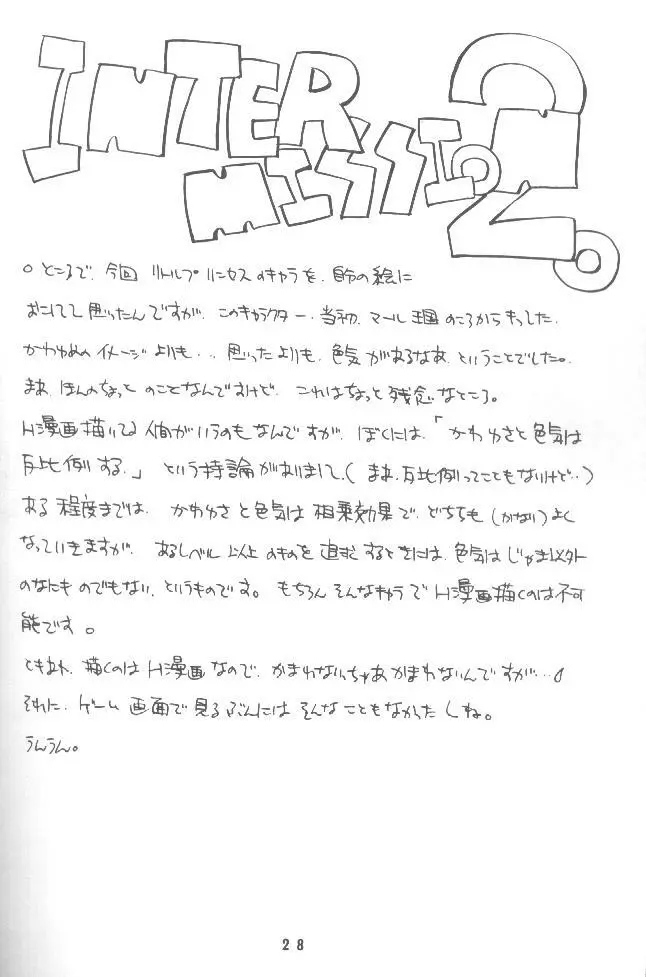 INTER
MISSION 2。
○ところで、今回 リトルプリンセスのキャラを、自分の絵に
おこしてて思ったんですが、このキャラクター、当初、マール王国のころからもってた、
かわゆめのイメージよりも、、思ったよりも、色気があるなあ、ということでした。
まあ、ほんのちょっとのことなんですけど、これはちょっと残念なところ。
H漫画描いてる人間がいうのもなんですが、ぼくには、「かわゆさと色気は
反比例する。」という持論がありまして、(まあ、反比例ってこともないけど…)
ある程度までは、かわゆさと色気は相乗効果で、どちらも(かなり)よく
なっていきますが、あるレベル以上のものを追求するときには、色気はじゃま以外
のなにものでもない、というものです。もちろんそんなキャラでH漫画描くのは不可
能です。
ともあれ、描くのはH漫画なので、かまわないっちゃあかまわないんですが…
それに、ゲーム画面で見るぶんにはそんなこともなかったしね。
うんうん。
28